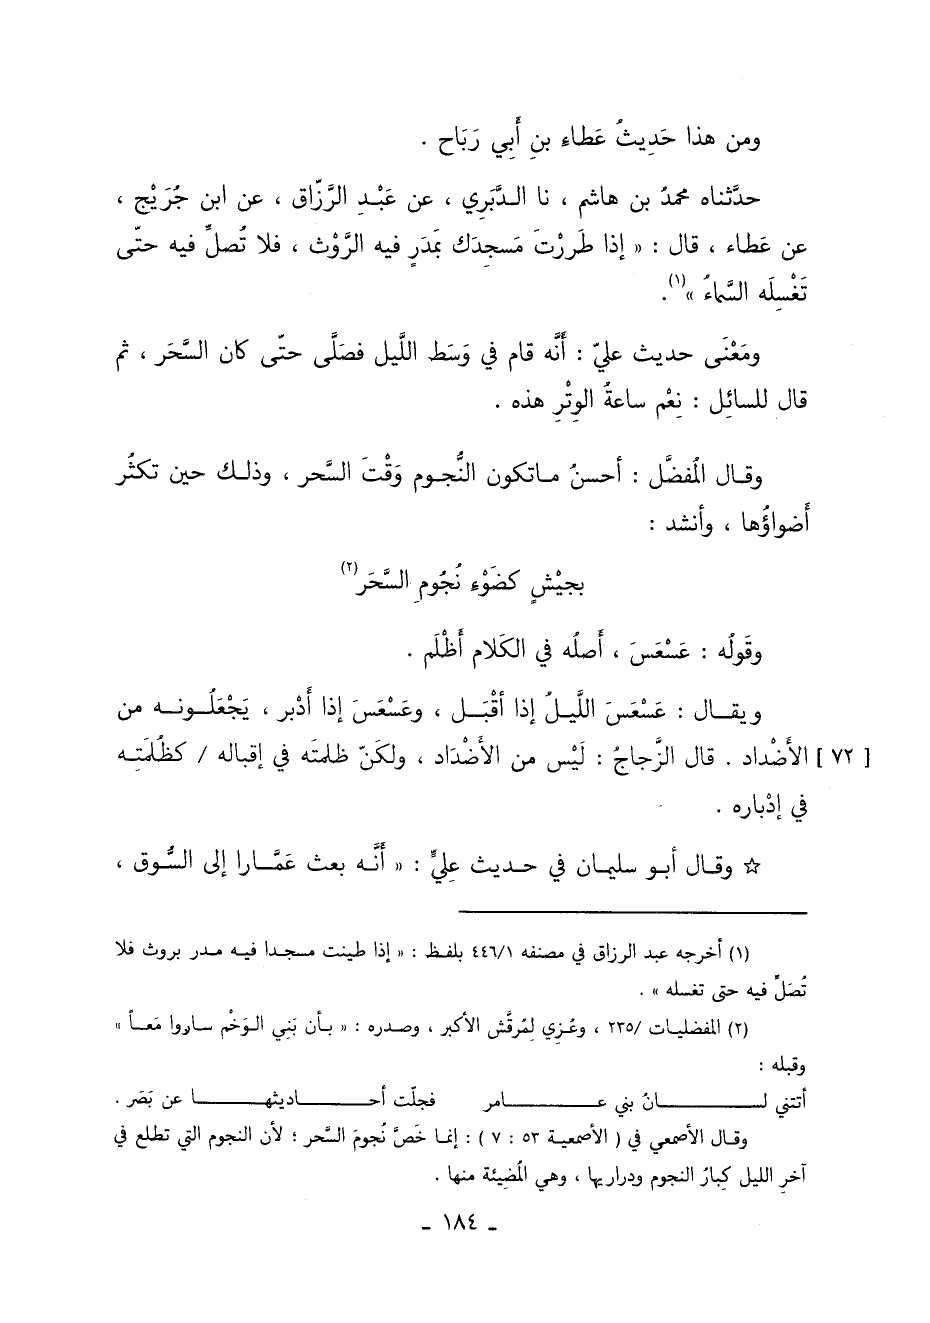 ومن هذا حَدِيثُ عَطاء بنِ أَبِي رَبَاح .
حدَّثناه محمدُ بن هاشم ، نا الـدَّبَرِي ، عن عَبْـدِ الرَّزّاق ، عن ابن جُرَيْج ،
عن عَطاء ، قال : « إذا طَررْتَ مَسجدَك بمَدَرٍ فيه الرَّوْث ، فلا تُصلِّ فيه حتّى
تَغْسِلَه السَّماءُ »(١).
ومَعْنَى حديث عليّ : أَنَّه قام في وَسَط اللَّيل فصَلَّى حتّى كان السَّحَر ، ثم
قال للسائِل : نِعْم ساعةُ الوِتْرِ هذه .
وقـال المُفضَّل : أحسنُ مـاتكون النُّجـوم وَقْتَ السَّحر ، وذلـك حين تكثُر
أَضواؤُها ، وأنشد :
بجيْشٍ كضَوْء نُجُومِ السَّحَر(٢)
وقَولُه : عَسْعَسَ ، أَصلُه في الكَلام أَظْلَم .
ويقـــال : عَسْعَسَ اللَّيلُ إذا أقْبَـل ، وعَسْعَسَ إذا أَدْبر ، يَجْعَلُـونـه من
[ ٧٢ ] الأَضْداد . قال الزَّجاجُ : لَيْس من الأَضْدَاد ، ولكَنّ ظلمتَه في إقباله / كظُلمَتِـه
في إدْباره .
☆ وقـال أبـو سليمان في حـديث عِليٍّ : « أَنَّـه بعث عَمَّـارا إلى السُّوق ،
(١) أخرجه عبد الرزاق في مصنفه ٤٤٦/١ بلفـظ : « إذا طينت مسجـدا فيـه مـدر بروث فلا
تُصَلِّ فيه حتى تغسله » .
(٢) المفضليـات /٢٣٥ ، وعُـزي لِمُرقَّش الأكبر ، وصـدره : « بـأن بَنِي الـوَخْم سـاروا مَعـاً »
وقبله :
أتتني لـــــــانُ بني عـــــــامر فجلّت أحـــــــاديثهـــــــا عن بَصَر .
وقـال الأصمعي في ( الأصمعيـة ٥٣ : ٧ ) : إنمـا خَصَّ نُجومَ السَّحر ؛ لأن النجوم التي تطلع في
آخرِ الليل كِبارُ النجوم ودراريها ، وهي المُضِيئة منها .
ـ ١٨٤ ـ